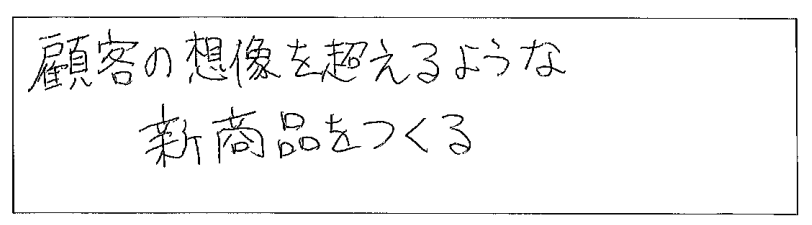 顧客の想像を超えるような
新商品をつくる